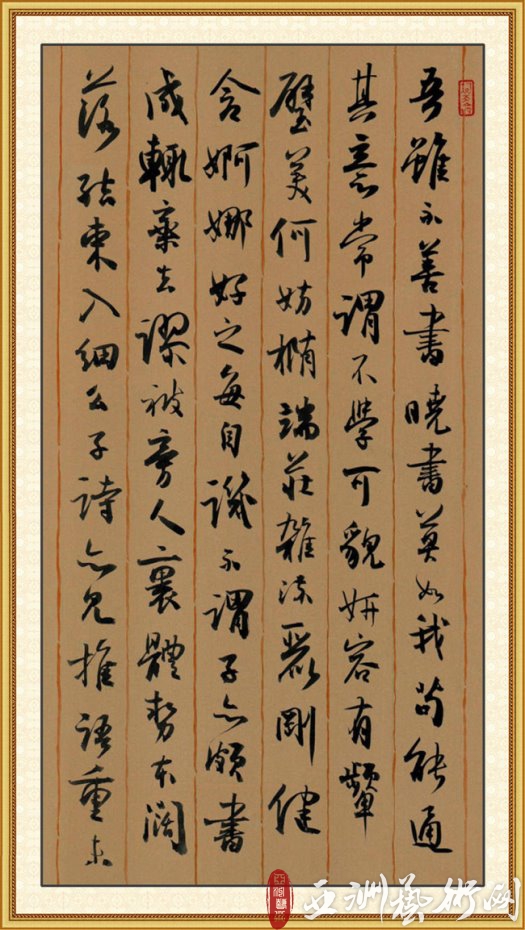 吾雖不善書曉書莫如我苟能通
其意常謂不學可貌妍容有顰
璧美何妨橢端莊雜流麗剛健
含婀娜好之每自譏不謂子亦頗書
成輒棄去謬被旁人裹體勢本闊
落結束入細么子詩亦見推語重未
亞洲藝術网